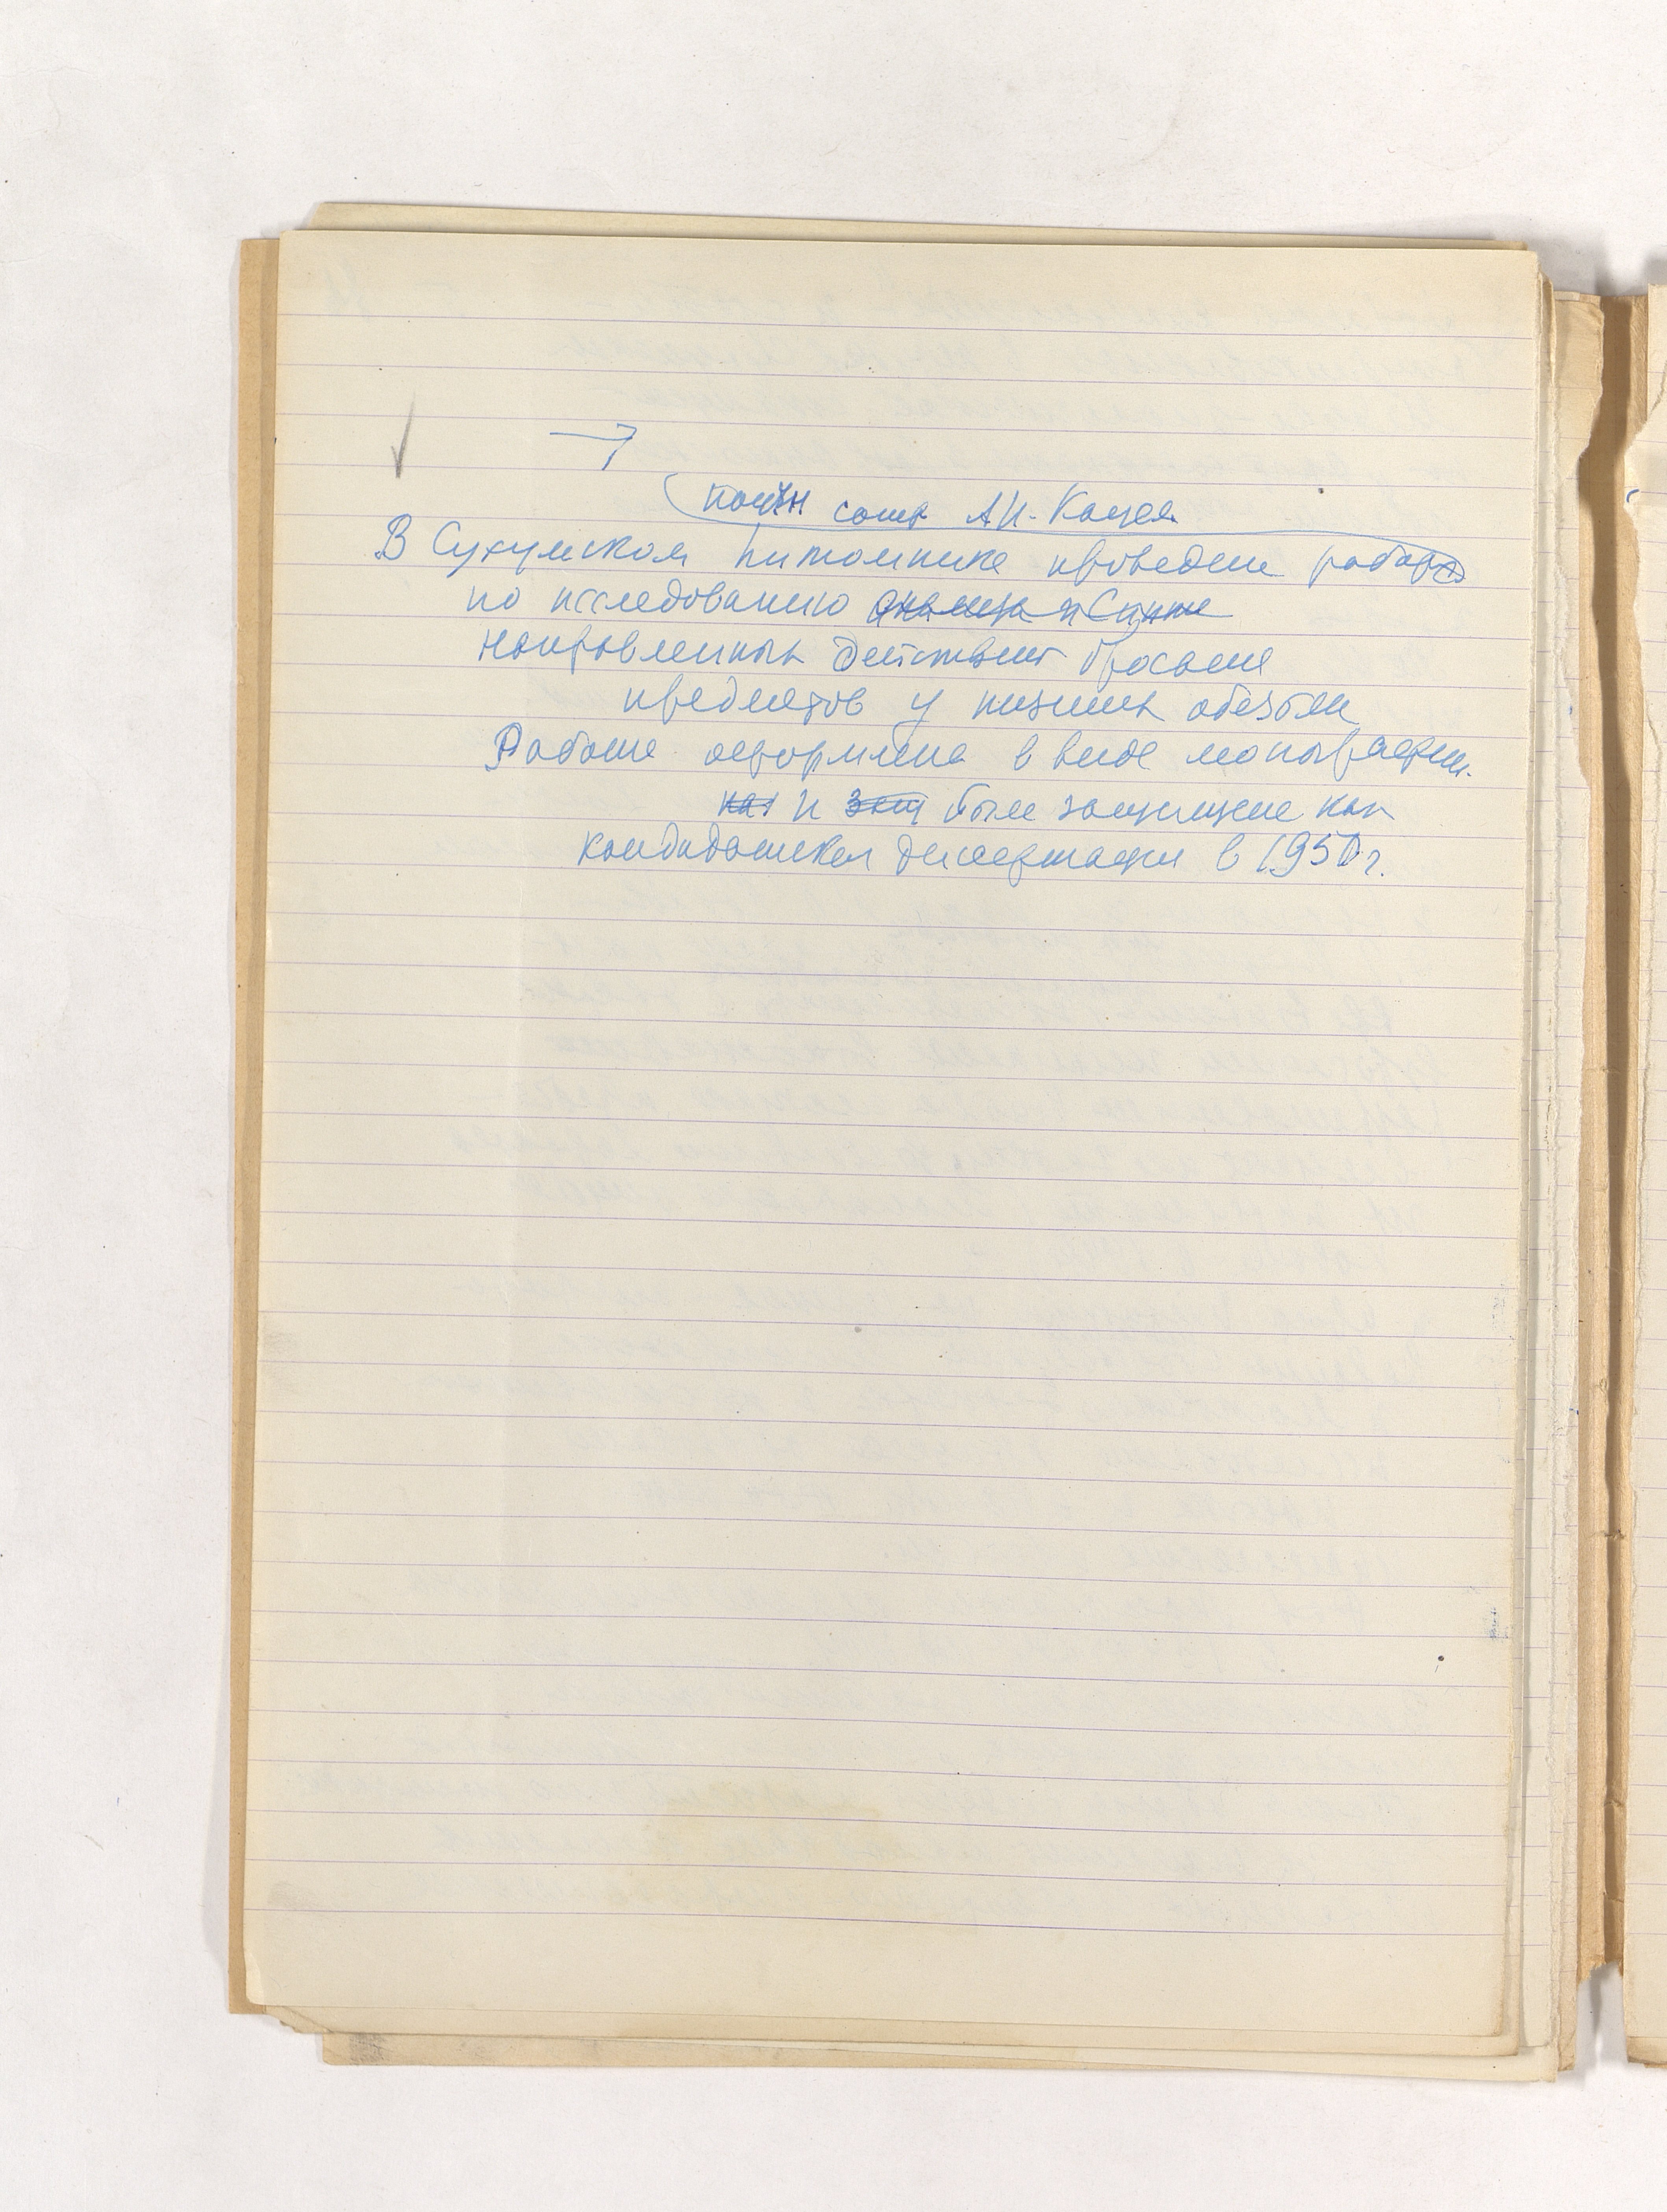 научн сотр А.И. Кацея
В Сухумском питомнике проведена работа
по исследованию анализа и синте
направленных действий бросания
предметов у низших обезьян
Работа оформлена в виде монографии.
как и защ была защищена как
кандидатская диссертация в 1950 г.